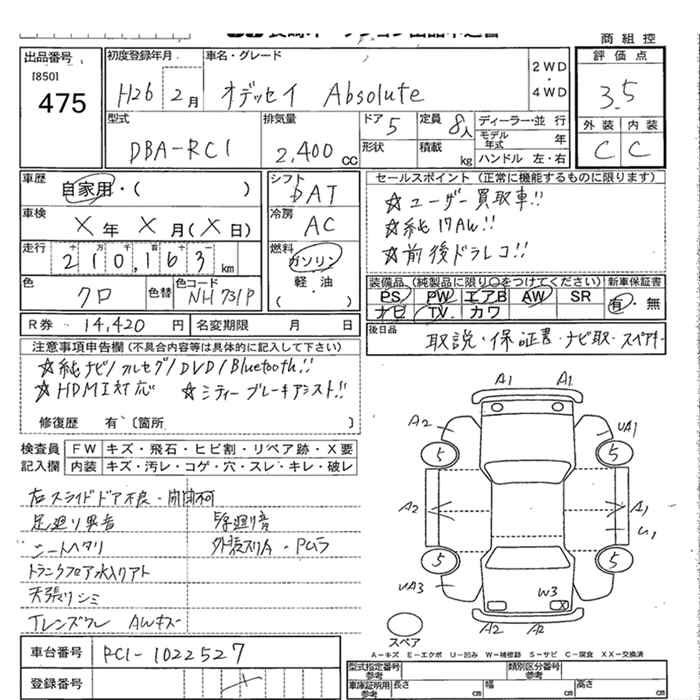 商組控
出品番号
[850]
475
初度登録年月
H26 2月
車名・グレード
オデッセイ Absolute
2WD
・
4WD
評価点
3.5
外装 内装
C C
型式
DBA-RC1
排気量
2,400 cc
ドア
5
形状
定員
8人
積載
kg
ディーラー・並行
モデル年式 年
ハンドル 左・右
車歴
自家用・( )
車検
X年 X月(X日)
走行
十 万 千 百 十
210,163 km
色
クロ
色替
色コード
NH731P
シフト
DAT
冷房
AC
燃料
ガソリン
軽・油
( )
セールスポイント (正常に機能するものに限ります)
☆ユーザー買取車!!
☆純17AW!!
☆前後ドラレコ!!
装備品 (純製品に限り○をつけてください) 新車保証書
PS PW エアB AW SR
ナビ TV カワ
有・無
後日品
取説・保証書・ナビ取・スペアキー
R券 14,420 円
名変期限 月 日
注意事項申告欄 (不具合内容等は具体的に記入して下さい)
☆純ナビ/フルセグ/DVD/Bluetooth!!
☆HDMI対応 ☆シティーブレーキアシスト!!
修復歴 有〔箇所 〕
検査員記入欄
FW キズ・飛石・ヒビ割・リペア跡・X要
内装 キズ・汚レ・コゲ・穴・スレ・キレ・破レ
右スライドドア不良・開閉可
足廻り異音
シートヘタリ 外装スリA・PCラ
トランクフロア水入リアト
天張りシミ
Tレンズワレ AWキズ
A1 A1
A2 UA1
5 5
A2 A1
U1
5 5
UA3 W3 X
A2 A2
スペア
A-キズ E-エクボ U-凹み W-補修跡 S-サビ C-腐食 XX-交換済
車台番号
RC1-1022527
登録番号
型式指定番号 参考
類別区分番号 参考
車庫証明用 参考
長さ cm 幅 cm 高さ cm